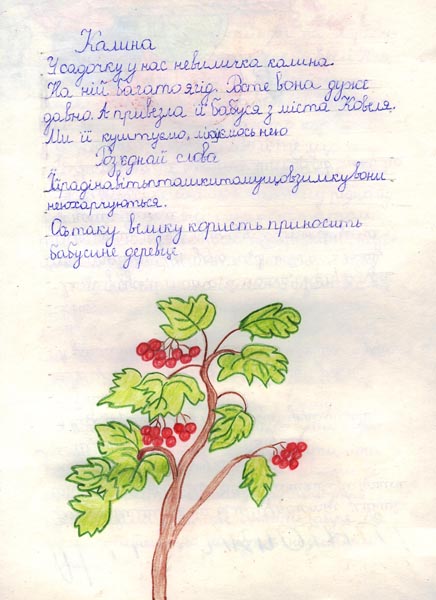 Калина
У садочку у нас невиличка калина.
На ній багато ягід. Росте вона дуже
давно. А привезла її бабуся з міста Ковеля.
Ми її куштуємо, лікуємось нею
Роз'єднай слова
Їйрадінавітьпташкитомущовзимкувони
неюхарчуються.
Ось таку велику користь приносить
бабусине деревце